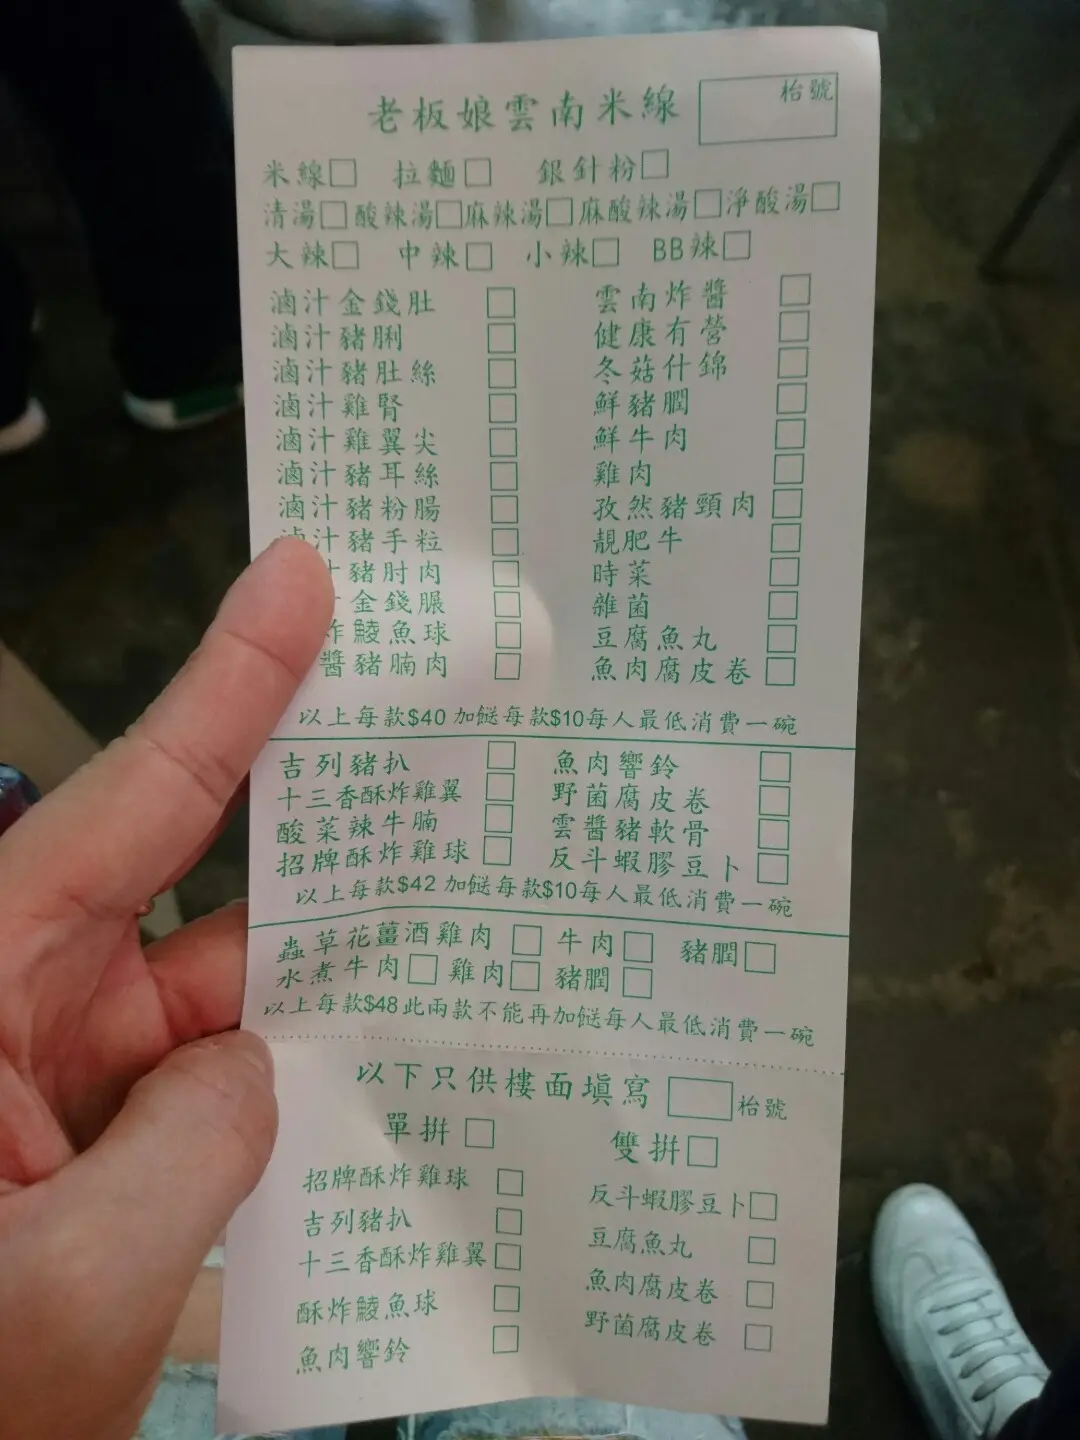 老板娘雲南米線 枱號
米線□ 拉麵□ 銀針粉□
清湯□酸辣湯□麻辣湯□麻酸辣湯□淨酸湯□
大辣□ 中辣□ 小辣□ BB辣□
滷汁金錢肚 □ 雲南炸醬 □
滷汁豬脷 □ 健康有營 □
滷汁豬肚絲 □ 冬菇什錦 □
滷汁雞腎 □ 鮮豬膶 □
滷汁雞翼尖 □ 鮮牛肉 □
滷汁豬耳絲 □ 雞肉 □
滷汁豬粉腸 □ 孜然豬頸肉 □
滷汁豬手粒 □ 靚肥牛 □
汁豬肘肉 □ 時菜 □
金錢𦟌 □ 雜菌 □
炸鯪魚球 □ 豆腐魚丸 □
醬豬腩肉 □ 魚肉腐皮卷 □
以上每款$40加餸每款$10每人最低消費一碗
吉列豬扒 □ 魚肉響鈴 □
十三香酥炸雞翼 □ 野菌腐皮卷 □
酸菜辣牛腩 □ 雲醬豬軟骨 □
招牌酥炸雞球 □ 反斗蝦膠豆卜 □
以上每款$42加餸每款$10每人最低消費一碗
蟲草花薑酒雞肉 □ 牛肉□ 豬膶□
水煮牛肉□ 雞肉□ 豬膶 □
以上每款$48此兩款不能再加餸每人最低消費一碗
以下只供樓面填寫 □枱號
單拼 □ 雙拼□
招牌酥炸雞球 □ 反斗蝦膠豆卜□
吉列豬扒 □ 豆腐魚丸 □
十三香酥炸雞翼□ 魚肉腐皮卷 □
酥炸鯪魚球 □ 野菌腐皮卷 □
魚肉響鈴 □